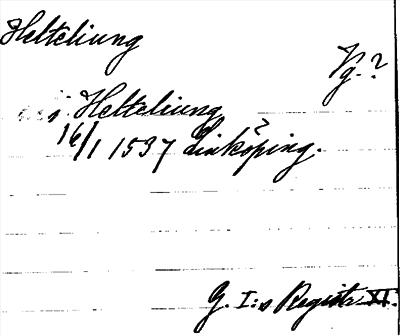 Helteliung
Vg.?
i Helteliung
16/1 1537 Linköping.
G. I:s Registr. XI.